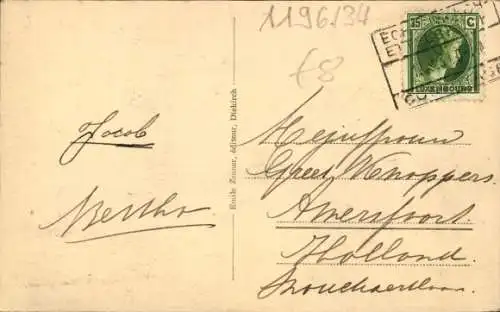 1196/34
£8
35 C
LUXEMBOURG
Jacob
Bertha
Emile Zenner, éditeur, Diekirch
Mejuffrouw
Greet Knoppers.
Amersfoort.
Holland.